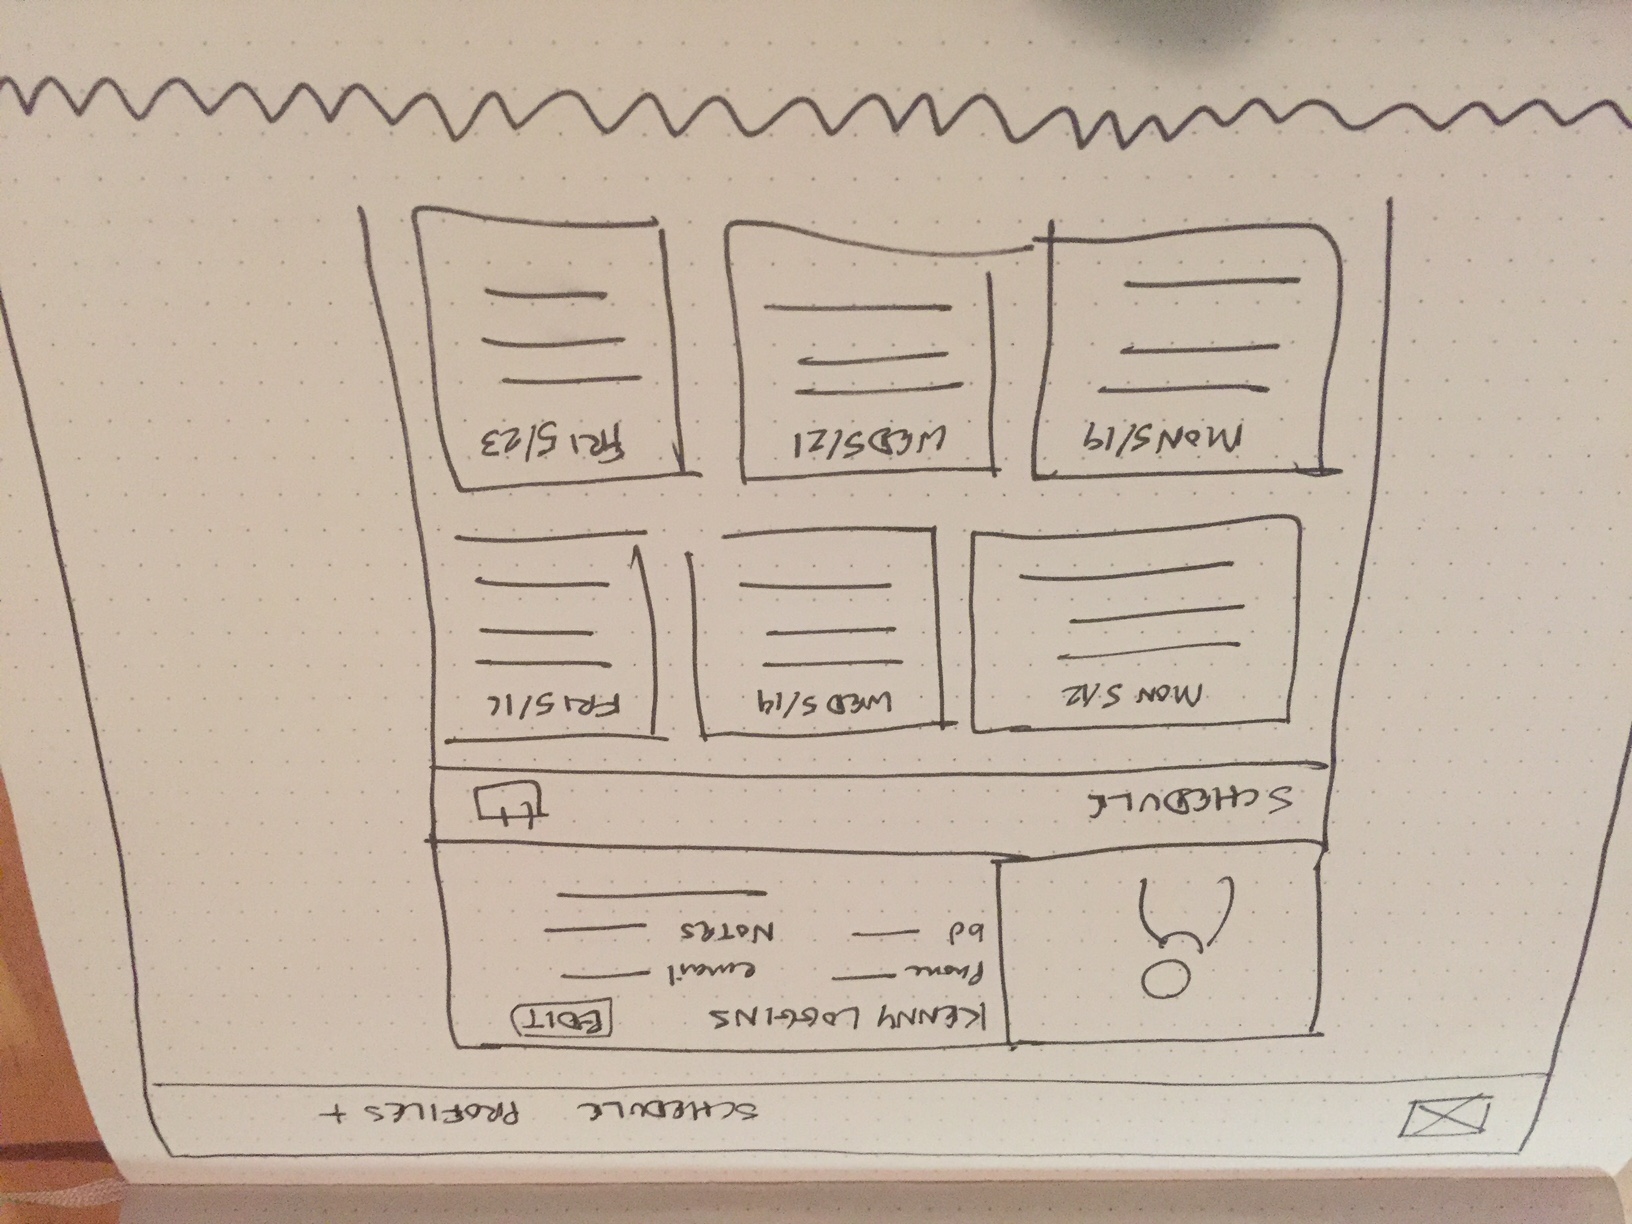 SCHEDULE PROFILES +
KENNY LOGGINS EDIT
Phone email
bd NOTES
SCHEDULE
MON 5/12 WED 5/14 FRI 5/16
MON 5/19 WED 5/21 FRI 5/23